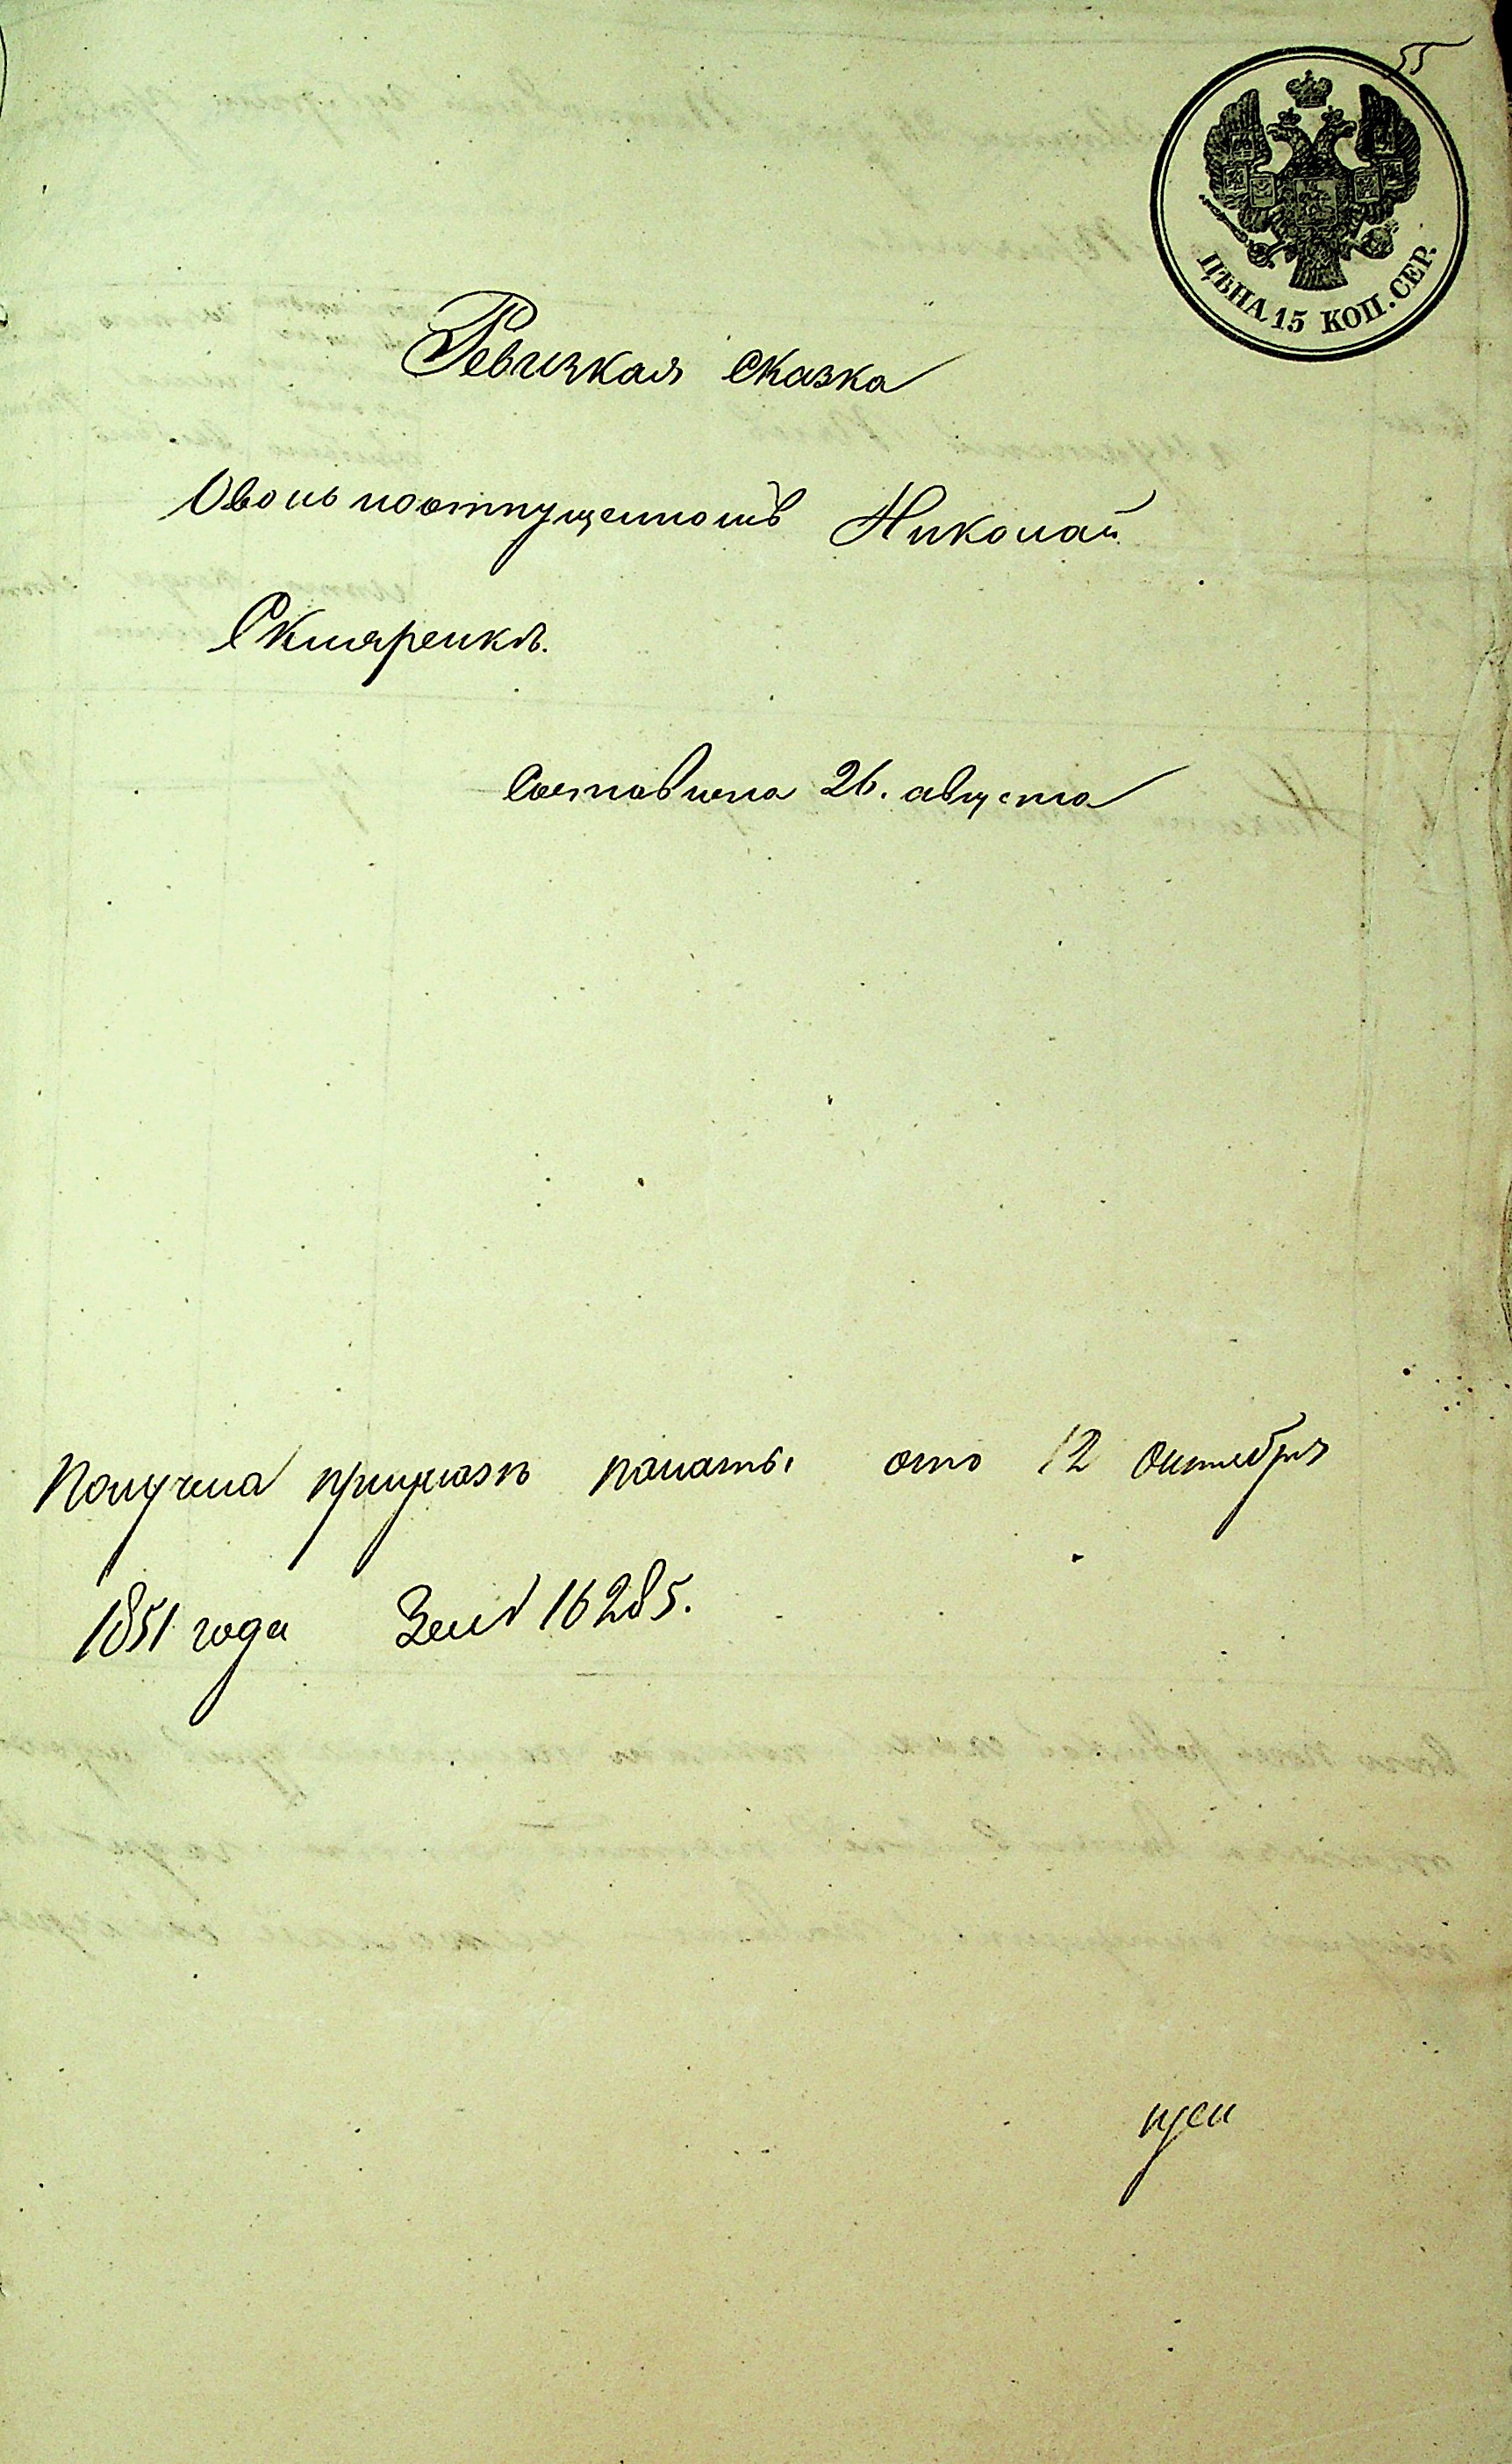 55
ЦѢНА 15 КОП. СЕР.
Ревизская сказка
О вольноотпущенномъ Николай
Скляренкѣ.
Составлена 26. августа
Получена при указѣ палаты отъ 12 Октября
1851 года За № 16285.